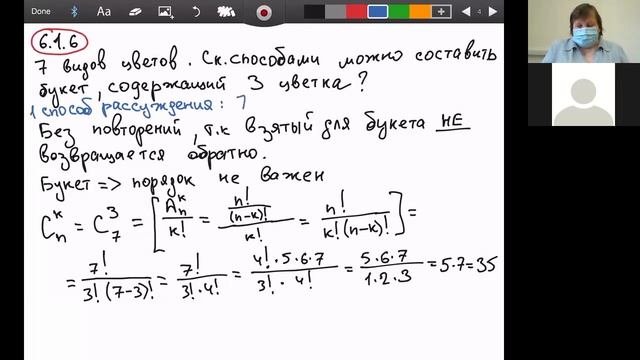 Done Aa 4
6.1.6
7 видов цветов. Ск. способами можно составить
букет, содержащий 3 цветка?
1 способ рассуждения: 7
Без повторений, т.к взятый для букета НЕ
возвращается обратно.
Букет => порядок не важен
C_n^k = C_7^3 = [A_n^k / k! = (n! / (n-k)!) / k! = n! / k!(n-k)!] =
= 7! / 3!(7-3)! = 7! / 3!·4! = 4!·5·6·7 / 3!·4! = 5·6·7 / 1·2·3 = 5·7=35